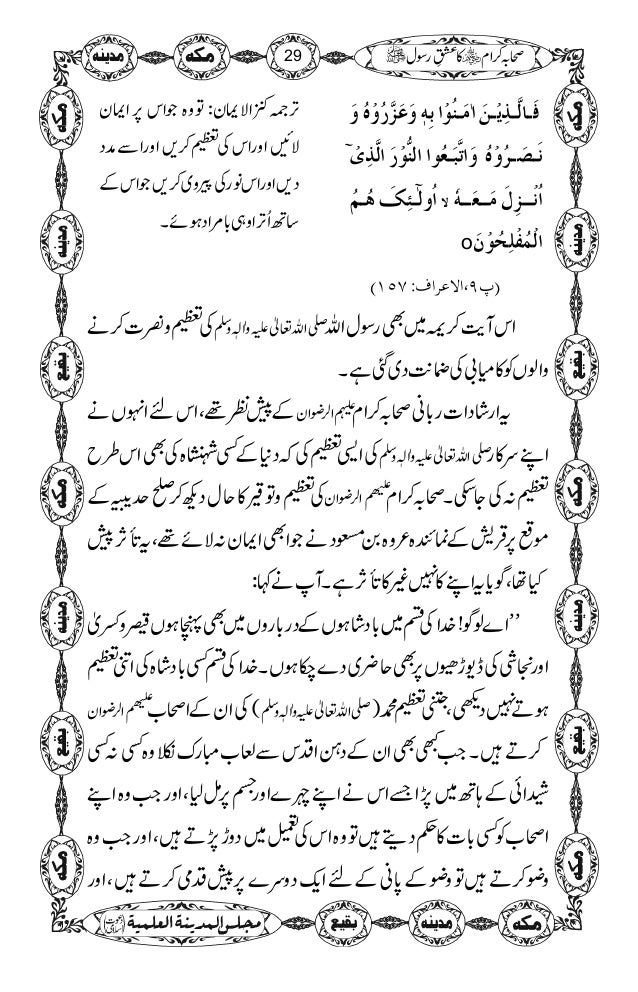 صحابہ کرام کا عشق رسول
29
مکه
مدینه
فَالَّذِيْنَ اٰمَنُوْا بِهٖ وَعَزَّرُوْهُ وَ
نَصَرُوْهُ وَاتَّبَعُوا النُّوْرَ الَّذِيْٓ
اُنْزِلَ مَعَهٗ ۙ اُولٰٓئِكَ هُمُ
الْمُفْلِحُوْنَ o
(پ۹،الاعراف: ۱۵۷)
ترجمہ کنزالایمان: تو وہ جو اس پر ایمان
لائیں اور اس کی تعظیم کریں اور اسے مدد
دیں اور اس نور کی پیروی کریں جو اس کے
ساتھ اُترا وہی بامراد ہوئے۔
اس آیت کریمہ میں بھی رسول اللہ صلی اللہ تعالیٰ علیہ والہٖ وسلم کی تعظیم و نصرت کرنے
والوں کو کامیابی کی ضمانت دی گئی ہے۔
یہ ارشادات ربانی صحابہ کرام علیہم الرضوان کے پیش نظر تھے، اس لئے انہوں نے
اپنے سرکار صلی اللہ تعالیٰ علیہ والہٖ وسلم کی ایسی تعظیم کی کہ دنیا کے کسی شہنشاہ کی بھی اس طرح
تعظیم نہ کی جاسکی۔ صحابہ کرام علیھم الرضوان کی تعظیم و توقیر کا حال دیکھ کر صلح حدیبیہ کے
موقع پر قریش کے نمائندہ عروہ بن مسعود نے جو ابھی ایمان نہ لائے تھے، یہ تأثر پیش
کیا تھا، گویا یہ اپنے کا نہیں غیر کا تأثر ہے۔ آپ نے کہا:
’’اے لوگو! خدا کی قسم میں بادشاہوں کے درباروں میں بھی پہنچا ہوں قیصر و کسریٰ
اور نجاشی کی ڈیوڑھیوں پر بھی حاضری دے چکا ہوں۔ خدا کی قسم کسی بادشاہ کی اتنی تعظیم
ہوتے نہیں دیکھی، جتنی تعظیم محمد (صلی اللہ تعالیٰ علیہ والہٖ وسلم) کی ان کے اصحاب علیھم الرضوان
کرتے ہیں۔ جب کبھی بھی ان کے دہن اقدس سے لعاب مبارک نکلا وہ کسی نہ کسی
شیدائی کے ہاتھ میں پڑا جسے اس نے اپنے چہرے اور جسم پر مل لیا، اور جب وہ اپنے
اصحاب کو کسی بات کا حکم دیتے ہیں تو وہ اس کی تعمیل میں دوڑ پڑتے ہیں، اور جب وہ
وضو کرتے ہیں تو وضو کے پانی کے لئے ایک دوسرے پر پیش قدمی کرتے ہیں، اور
مکه
مدینه
بقیع
مکه
مدینه
بقیع
مکه
مکه
مدینه
بقیع
مکه
مدینه
بقیع
مکه
مکه
مدینه
بقیع
مجلس المدینة العلمیة